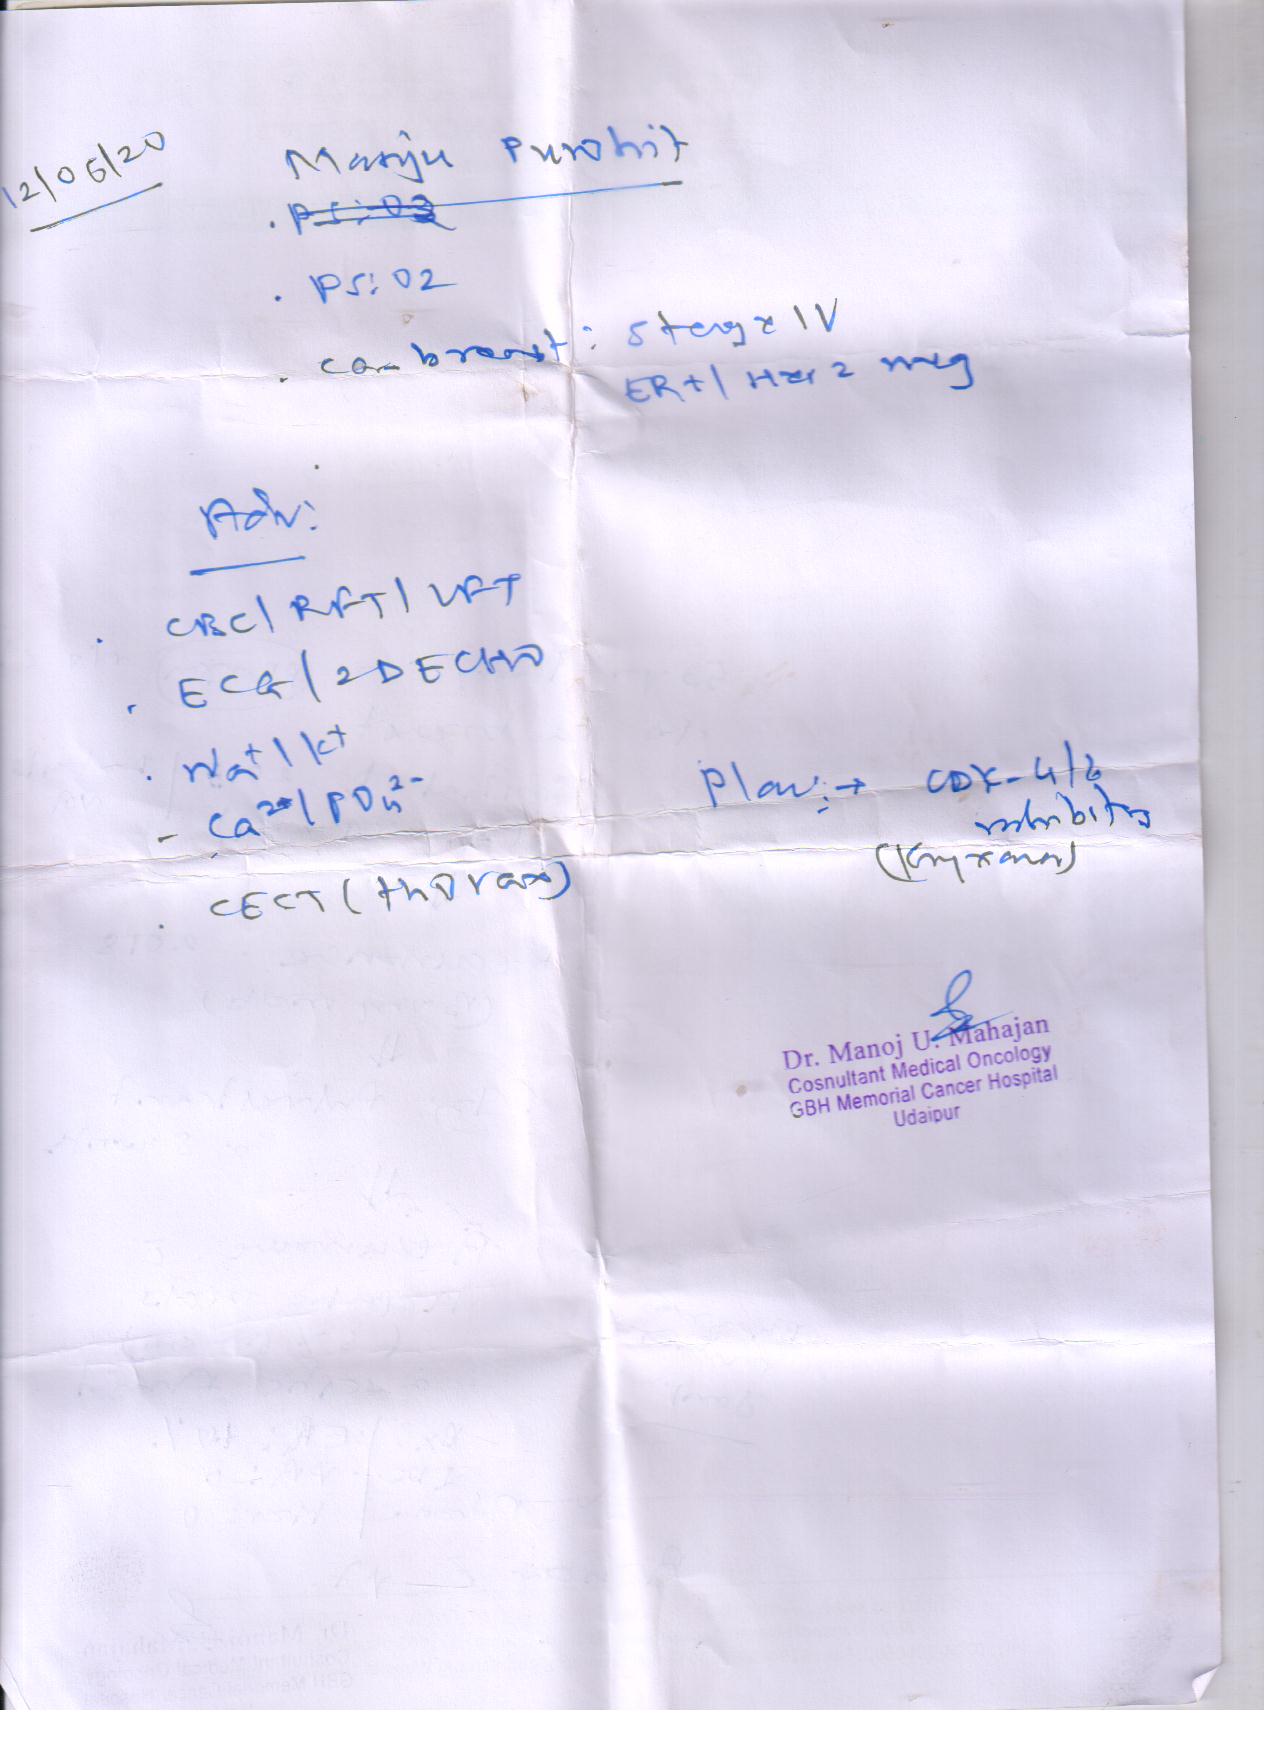 12/06/20
Manju Purohit
. PS: 03
. PS: 02
. ca breast: Stage IV
ER+/ Her2 neg
Adv:
. CBC/ RFT/ LFT
. ECG/ 2D ECHO
. Na+/ K+
- Ca2+/ PO4 2-
Plan: → CDK-4/6
inhibitors
(Kryxana)
. CECT (thorax)
Dr. Manoj U. Mahajan
Cosnultant Medical Oncology
GBH Memorial Cancer Hospital
Udaipur